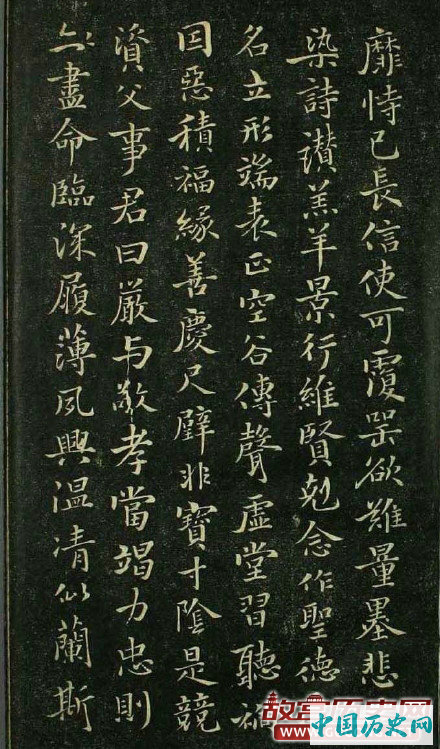 靡恃己長信使可覆器欲難量墨悲
染詩讃羔羊景行維賢剋念作聖德
名立形端表正空谷傳聲虛堂習聽禍
因惡積福緣善慶尺璧非寶寸陰是競
資父事君曰嚴与敬孝當竭力忠則
盡命臨深履薄夙興温凊似蘭斯
故宫历史网
中国历史网